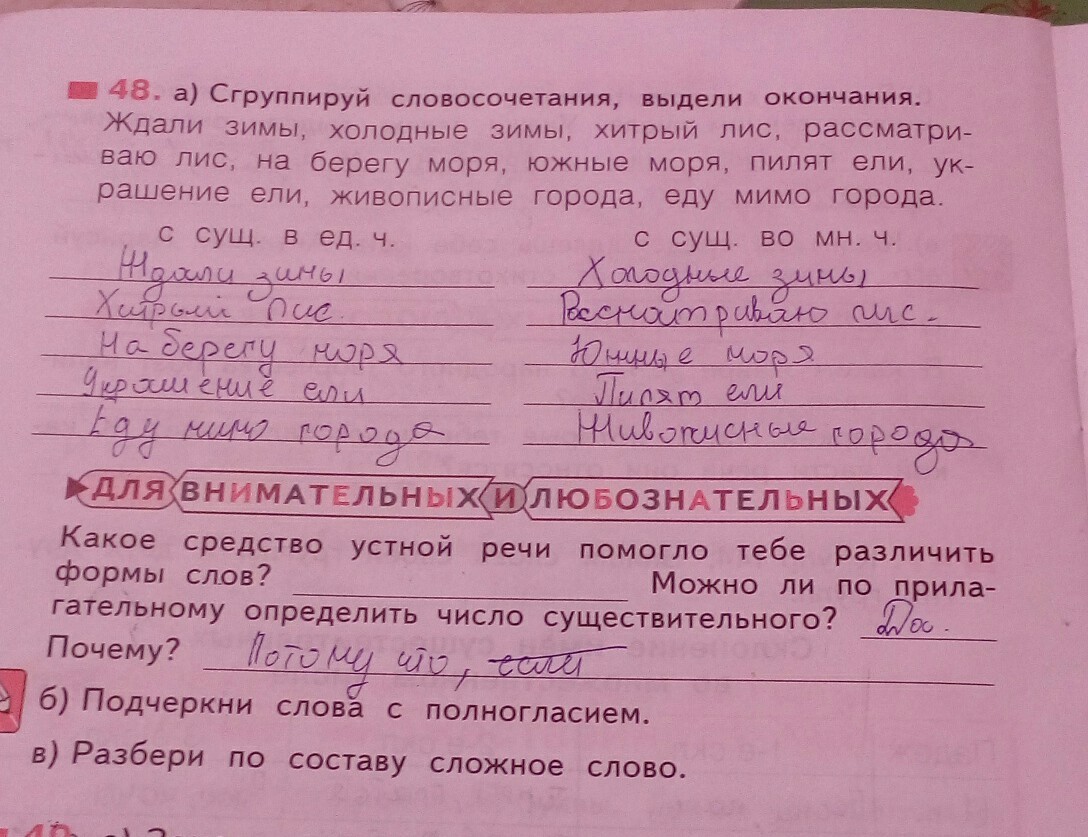 48. а) Сгруппируй словосочетания, выдели окончания.
Ждали зимы, холодные зимы, хитрый лис, рассматри-
ваю лис, на берегу моря, южные моря, пилят ели, ук-
рашение ели, живописные города, еду мимо города.
с сущ. в ед. ч. с сущ. во мн. ч.
Ждали зимы Холодные зимы
Хитрый лис. Рассматриваю лис.
На берегу моря Южные моря
Украшение ели Пилят ели
Еду мимо города Живописные города
ДЛЯ ВНИМАТЕЛЬНЫХ И ЛЮБОЗНАТЕЛЬНЫХ
Какое средство устной речи помогло тебе различить
формы слов? Можно ли по прила-
гательному определить число существительного? Да.
Почему? Потому что, если
б) Подчеркни слова с полногласием.
в) Разбери по составу сложное слово.